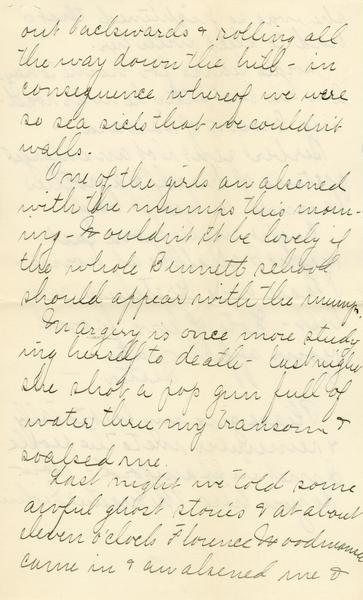 out backwards & rolling all
the way down the hill - in
consequence whereof we were
so sea sick that we couldn't
walk.
One of the girls awakened
with the mumps this morn-
ing - Wouldn't it be lovely if
the whole Bennett school
should appear with the mumps.
Margery is once more study
ing herself to death - Last night
she shot a pop gun full of
water thru my transom &
soaked me.
Last night we told some
awful ghost stories & at about
eleven o'clock Florence Woodmance
came in & awakened me &